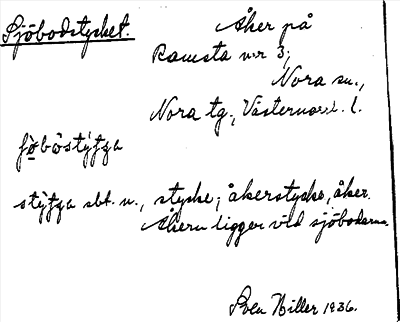 Sjöbodstycket. Åker på
Ramsta n:r 3;
Nora sn.,
Nora tg., Västernorrl. l.
stycke; åkerstycke, åker.
Åkern ligger vid sjöbodarna.
Sven Hiller 1936.